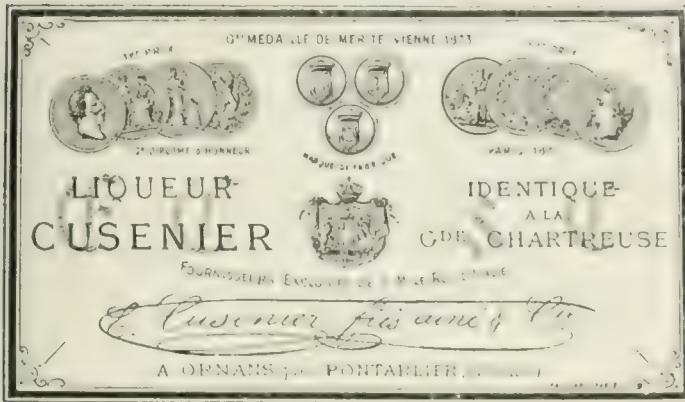 Gde MEDAILLE DE MERITE VIENNE 1873
1er PRIX
Gd DIPLOME D'HONNEUR
MARQUE DE FABRIQUE
PARIS
LIQUEUR
CUSENIER
IDENTIQUE
A LA
GDE CHARTREUSE
FOURNISSEURS
Cusenier fils ainé & Cie
A ORNANS PONTARLIER